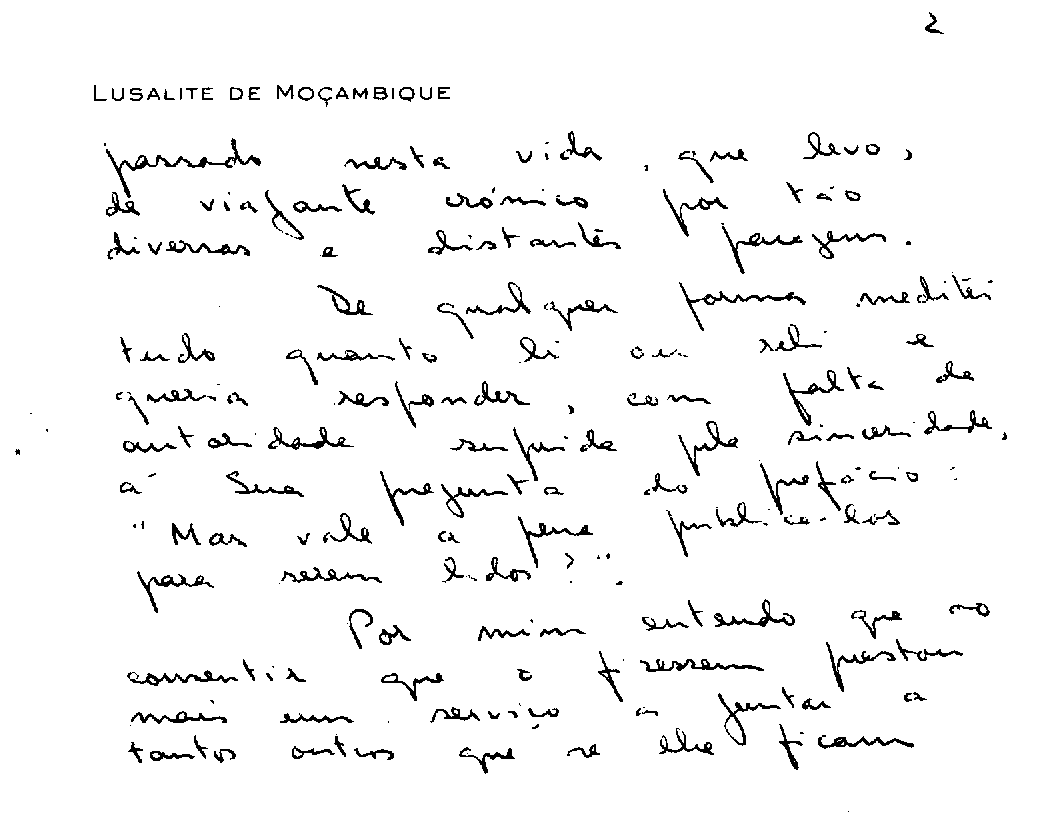 2
LUSALITE DE MOÇAMBIQUE
passado nesta vida, que levo,
de viajante crónico por tão
diversas e distantes paragens.
De qualquer forma meditei
tudo quanto li ou reli e
queria responder, com falta de
autoridade suprida pela sinceridade,
à Sua pregunta do prefácio:
"Mas vale a pena publicá-los
para serem lidos?".
Por mim entendo que ao
consentir que o fizessem prestou
mais um serviço a juntar a
tantos outros que se lhe ficam